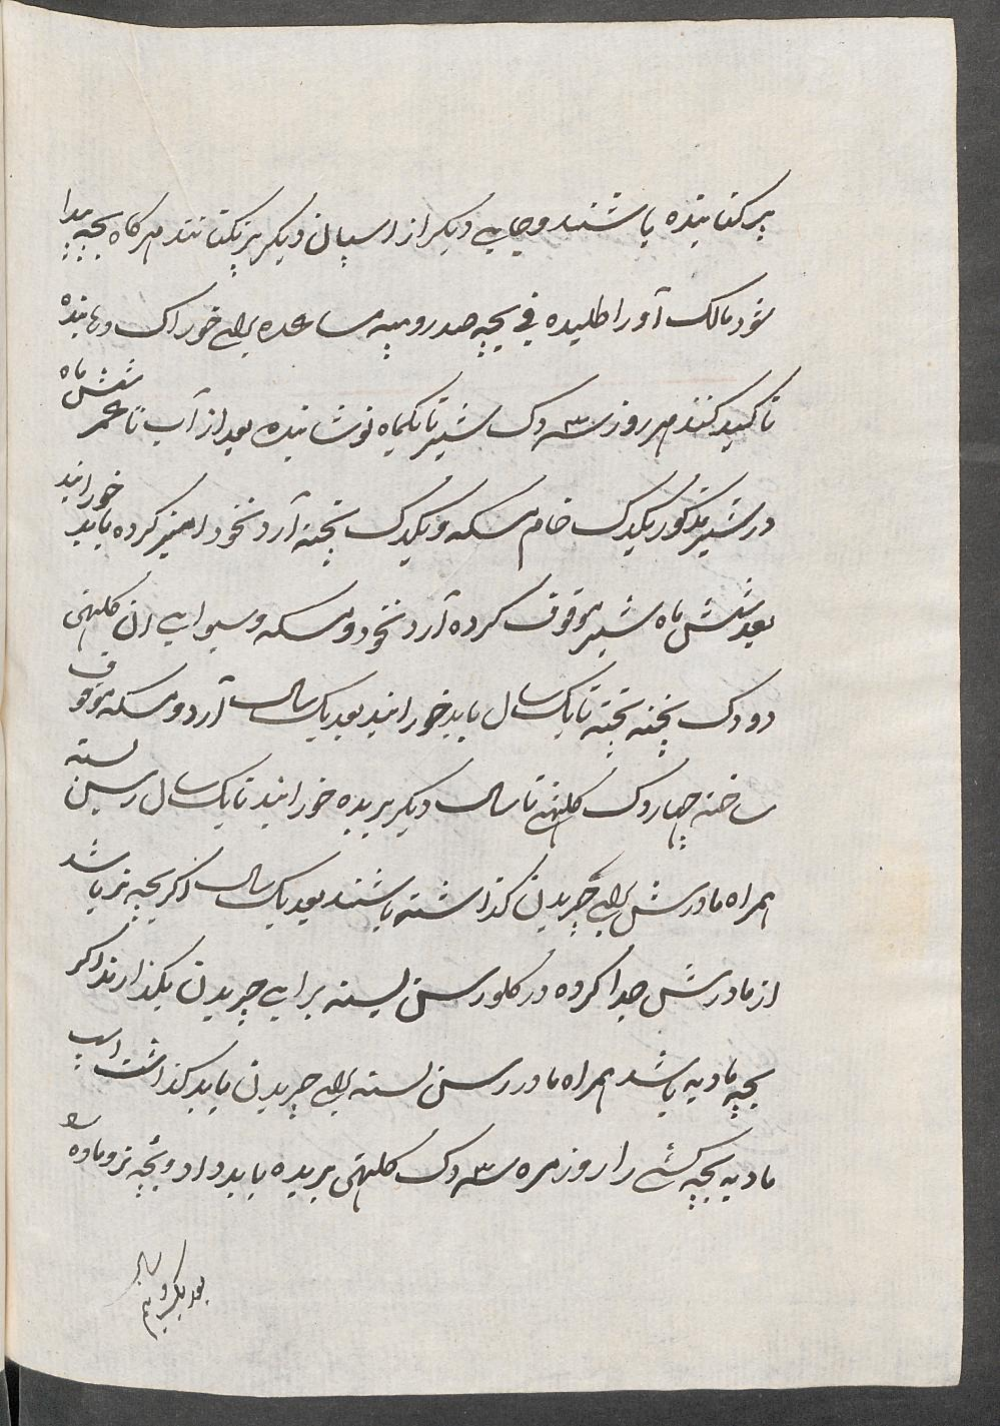 پر کنانیده باشند و جایی دیگر از اسپان دیگر پر نکنانند هر گاه بچه پیدا
شود مالک آورا طلبیده فی بچه صد روپیه مساعده برای خوراک دهانیده
تاکید کنند هر روز سه دک شیر تا یکماه نوشانیده بعد از آن تا عمر شش ماه
در شیر مذکور یکدک خام مسکه و یکدک پخته آرد نخود امیز کرده باید خورانید
بعد شش ماه شیر موقوف کرده آرد نخود و مسکه و سوای ان کلتهی
دو دک پخته پخته تا یک سال باید خورانید بعد یک سال آرد و مسکه موقوف
ساخته چهار دک کلتهی تا سال دیگر بریده خورانید تا یک سال رسن بسته
همراه مادرش برای چریدن گذاشته باشند بعد یک سال اگر بچه نر باشد
از مادرش جدا کرده در گلو رسن بسته برای چریدن بگذارند اگر
بچه مادیه باشد همراه مادر رسن بسته برای چریدن باید گذاشت اسپ
مادیه بچه کشی را روزمره سه دک کلتهی بریده باید داد و بچه نر و ماده
بعد یک و نیم سال